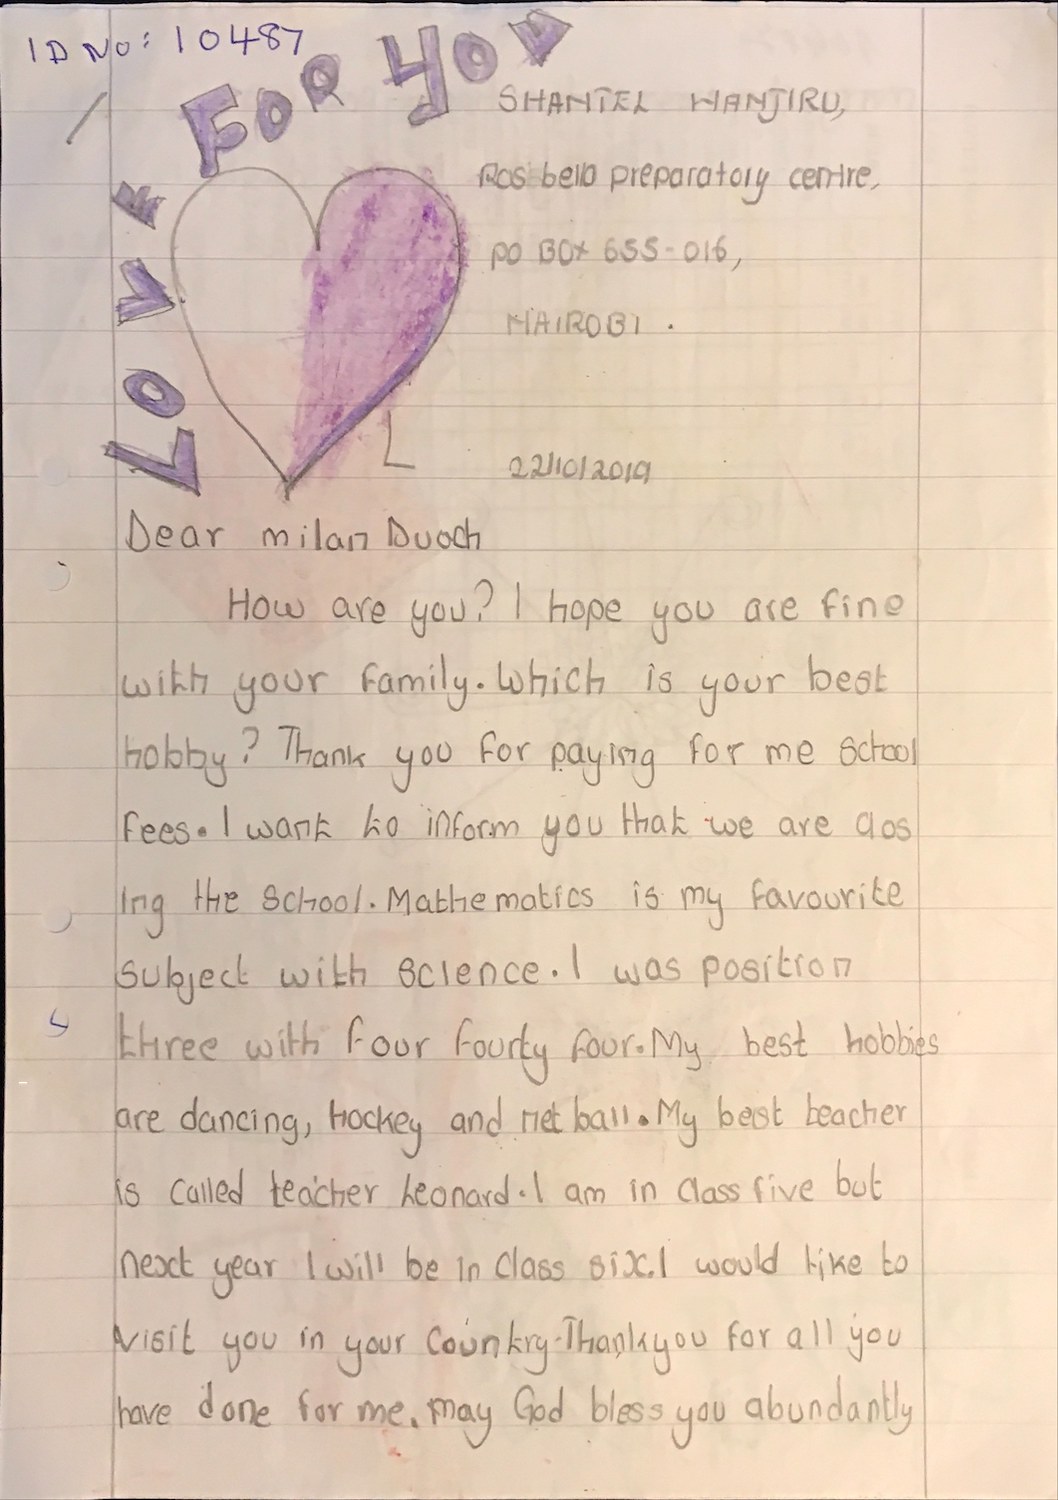 ID No: 10487
LOVE FOR YOU
SHANTEL WANJIRU,
Ros bella preparatory centre,
po BOX 655-016,
NAIROBI.
22/10/2019
Dear milan Duoch
How are you? I hope you are fine
with your family. Which is your best
hobby? Thank you for paying for me school
fees. I want to inform you that we are clos
ing the school. Mathematics is my favourite
subject with science. I was position
three with four fourty four. My best hobbies
are dancing, hockey and net ball. My best teacher
is called teacher Leonard. I am in class five but
next year I will be in class six. I would like to
visit you in your country. Thank you for all you
have done for me. may God bless you abundantly